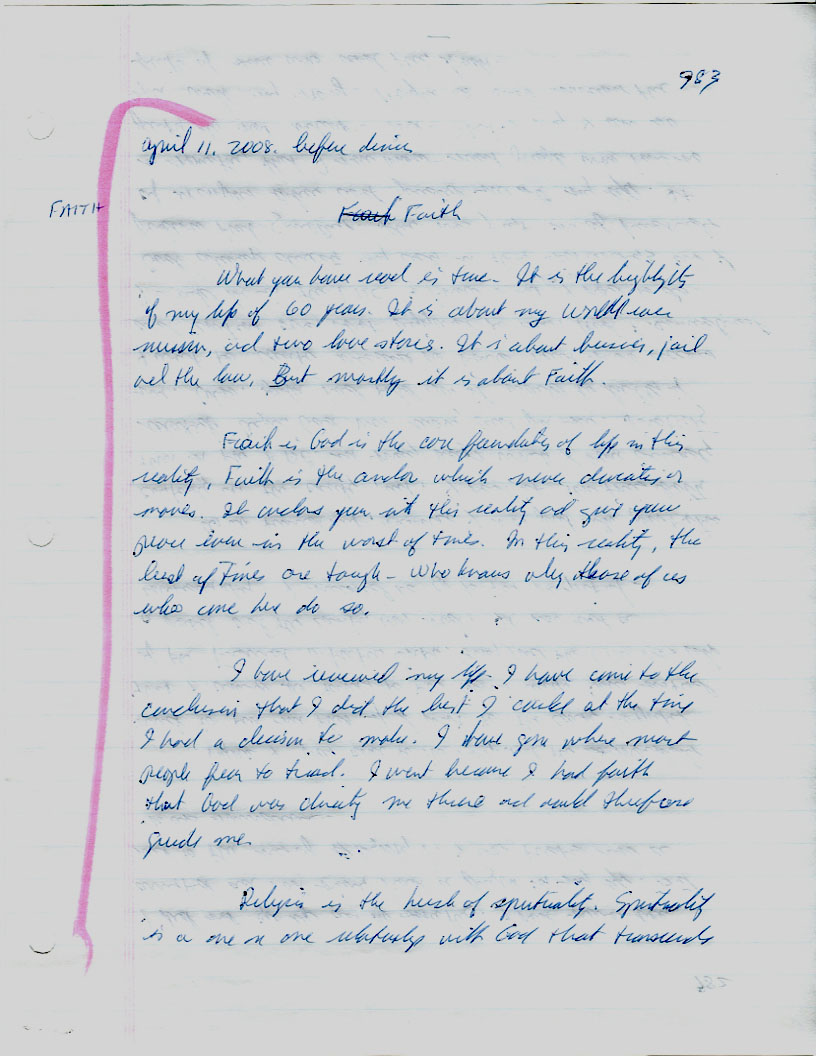 983
April 11. 2008. before dinner
FAITH
Faith Faith
What you have read is true. It is the highlights
of my life of 60 years. It is about my World war
mission, and two love stories. It is about business, jail
and the law, But mostly it is about Faith.
Faith is God is the core foundation of life in this
reality, Faith is the anchor which never deviates or
moves. It anchors you into this reality and gives you
peace even in the worst of times. In this reality, the
best of Times are tough - Who knows why those of us
who come here do so.
I have reviewed my life. I have come to the
conclusion that I did the best I could at the time
I had a decision to make. I have gone where most
people fear to tread. I went because I had faith
that God was directing me there and would therefore
guide me.
Religion is the husk of spirituality. Spirituality
is a one on one relationship with God that transcends
982